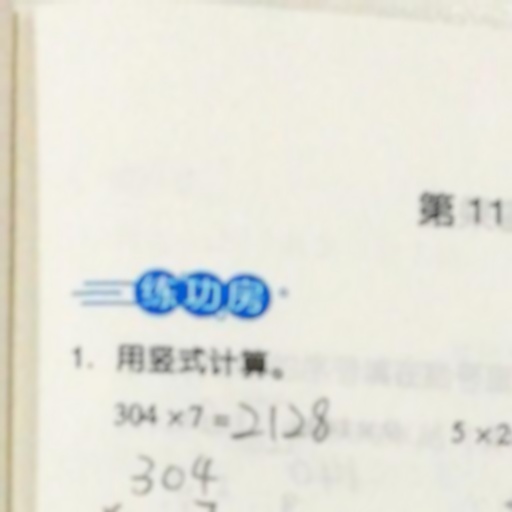 第11
练功房
1. 用竖式计算。
304×7=2128 5×2
304
× 7